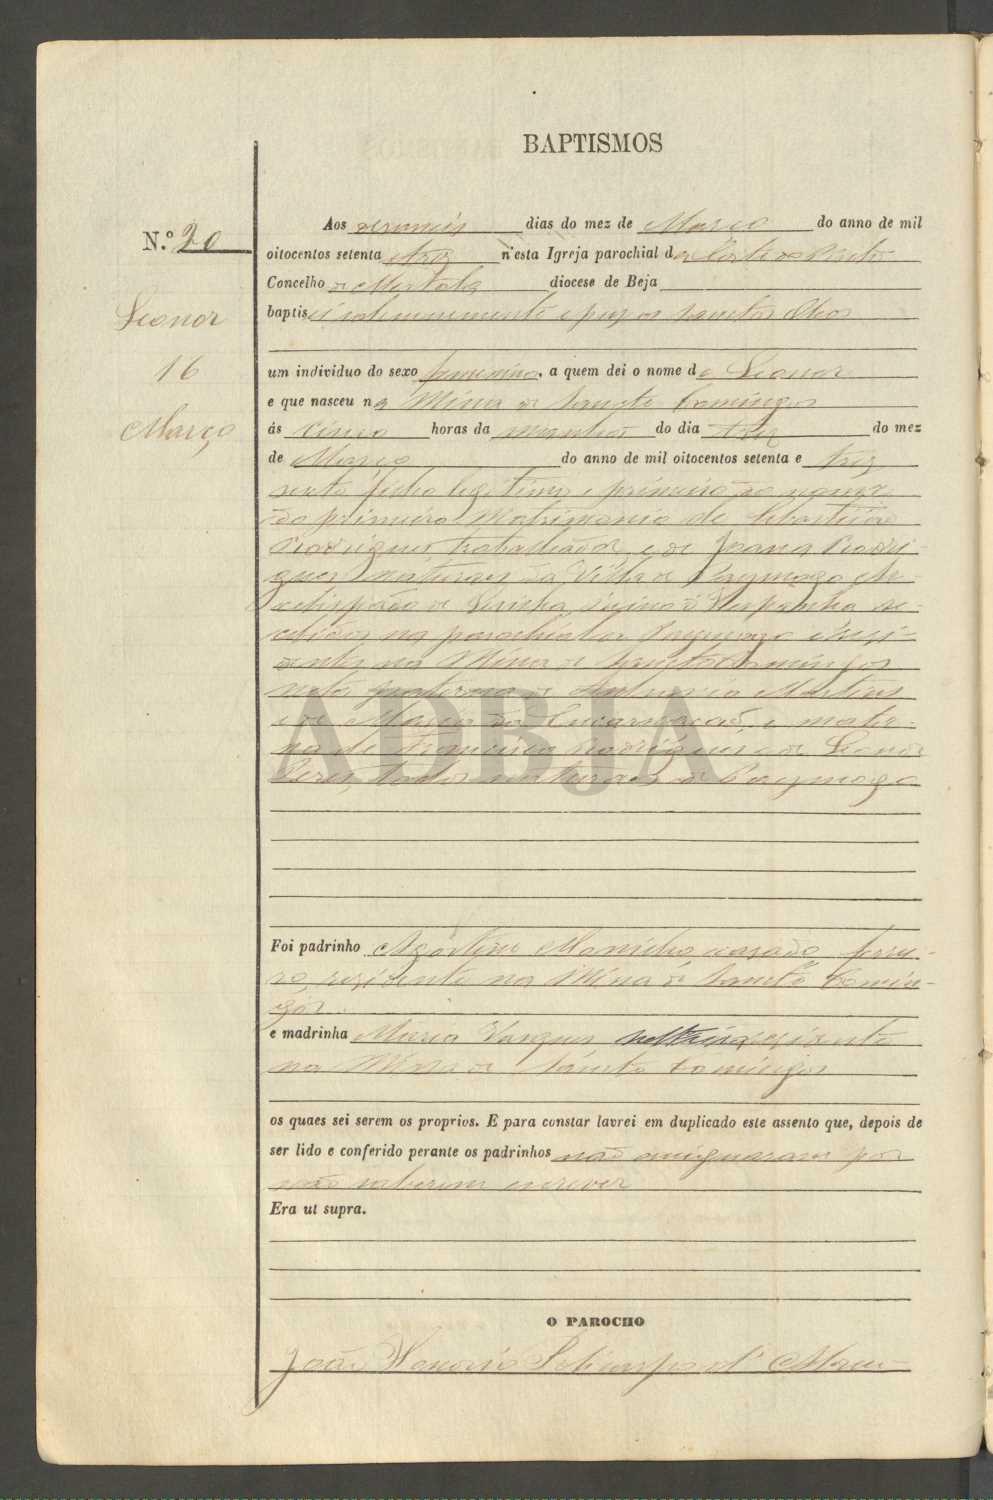 BAPTISMOS
N.º 20
Leonor
16
Março
Aos deseseis dias do mez de Março do anno de mil
oitocentos setenta e trez n'esta Igreja parochial da Corte do Pinto
Concelho de Mertola diocese de Beja
baptisei solemnemente e puz os Sanctos Oleos
um individuo do sexo feminino, a quem dei o nome de Leonor
e que nasceu na Mina de Sancto Domingos
ás cinco horas da manhã do dia trez do mez
de Março do anno de mil oitocentos setenta e trez
filha legitima e primeira do nome
do primeiro Matrimonio de Sebastião
Rodrigues trabalhador, e de Joana Rodri-
gues naturaes da Villa de Paymogo Ar-
cebispado de Sevilha, Reino d'Hespanha re-
cebidos na parochial de Paymogo e resi-
dentes na Mina de Sancto Domingos
neta paterna de Antonio Martins
e de Maria da Encarnação, e mater-
na de Francisco Rodrigues, e de Leonor
Peres, todos naturaes de Paymogo
Foi padrinho Agostinho casado ferrei-
ro, residente na Mina de Sancto Domin-
gos
e madrinha Maria Vasques solteira residente
na Mina de Sancto Domingos
os quaes sei serem os proprios. E para constar lavrei em duplicado este assento que, depois de
ser lido e conferido perante os padrinhos não assignaram por
não saberem escrever
Era ut supra.
O PAROCHO
João Honorio d'
ADBJA